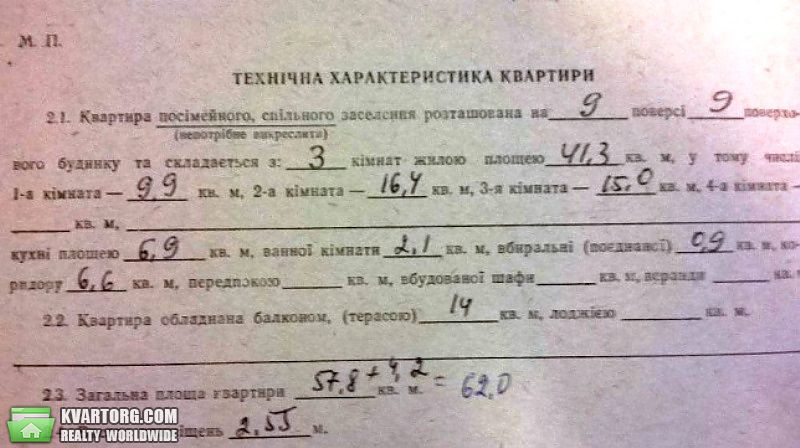 М. П.
ТЕХНІЧНА ХАРАКТЕРИСТИКА КВАРТИРИ
2.1. Квартира посімейного, спільного заселення розташована на 9 поверсі 9 поверхо-
(непотрібне викреслити)
вого будинку та складається з: 3 кімнат жилою площею 41,3 кв. м, у тому числі
1-а кімната — 9,9 кв. м, 2-а кімната — 16,4 кв. м, 3-я кімната — 15,0 кв. м, 4-а кімната —
кв. м,
кухні площею 6,9 кв. м, ванної кімнати 2,1 кв. м, вбиральні (поєднаної) 0,9 кв. м, ко-
ридору 6,6 кв. м, передпокою кв. м, вбудованої шафи кв. м, веранди кв.
2.2. Квартира обладнана балконом, (терасою) 14 кв. м, лоджією кв. м.
2.3. Загальна площа квартири 57,8 + 4,2 кв. м. = 62,0
2,55 м.
KVARTORG.COM
REALTY-WORLDWIDE